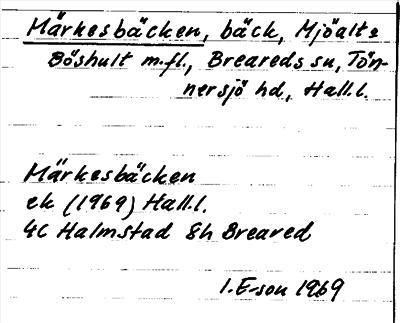 Märkesbäcken, bäck, Mjöalt
Böshult m.fl., Breareds sn, Tön-
nersjö hd, Hall.l.
Märkesbäcken
ek (1969) Hall.l.
4C Halmstad 8h Breared
I. E-son 1969